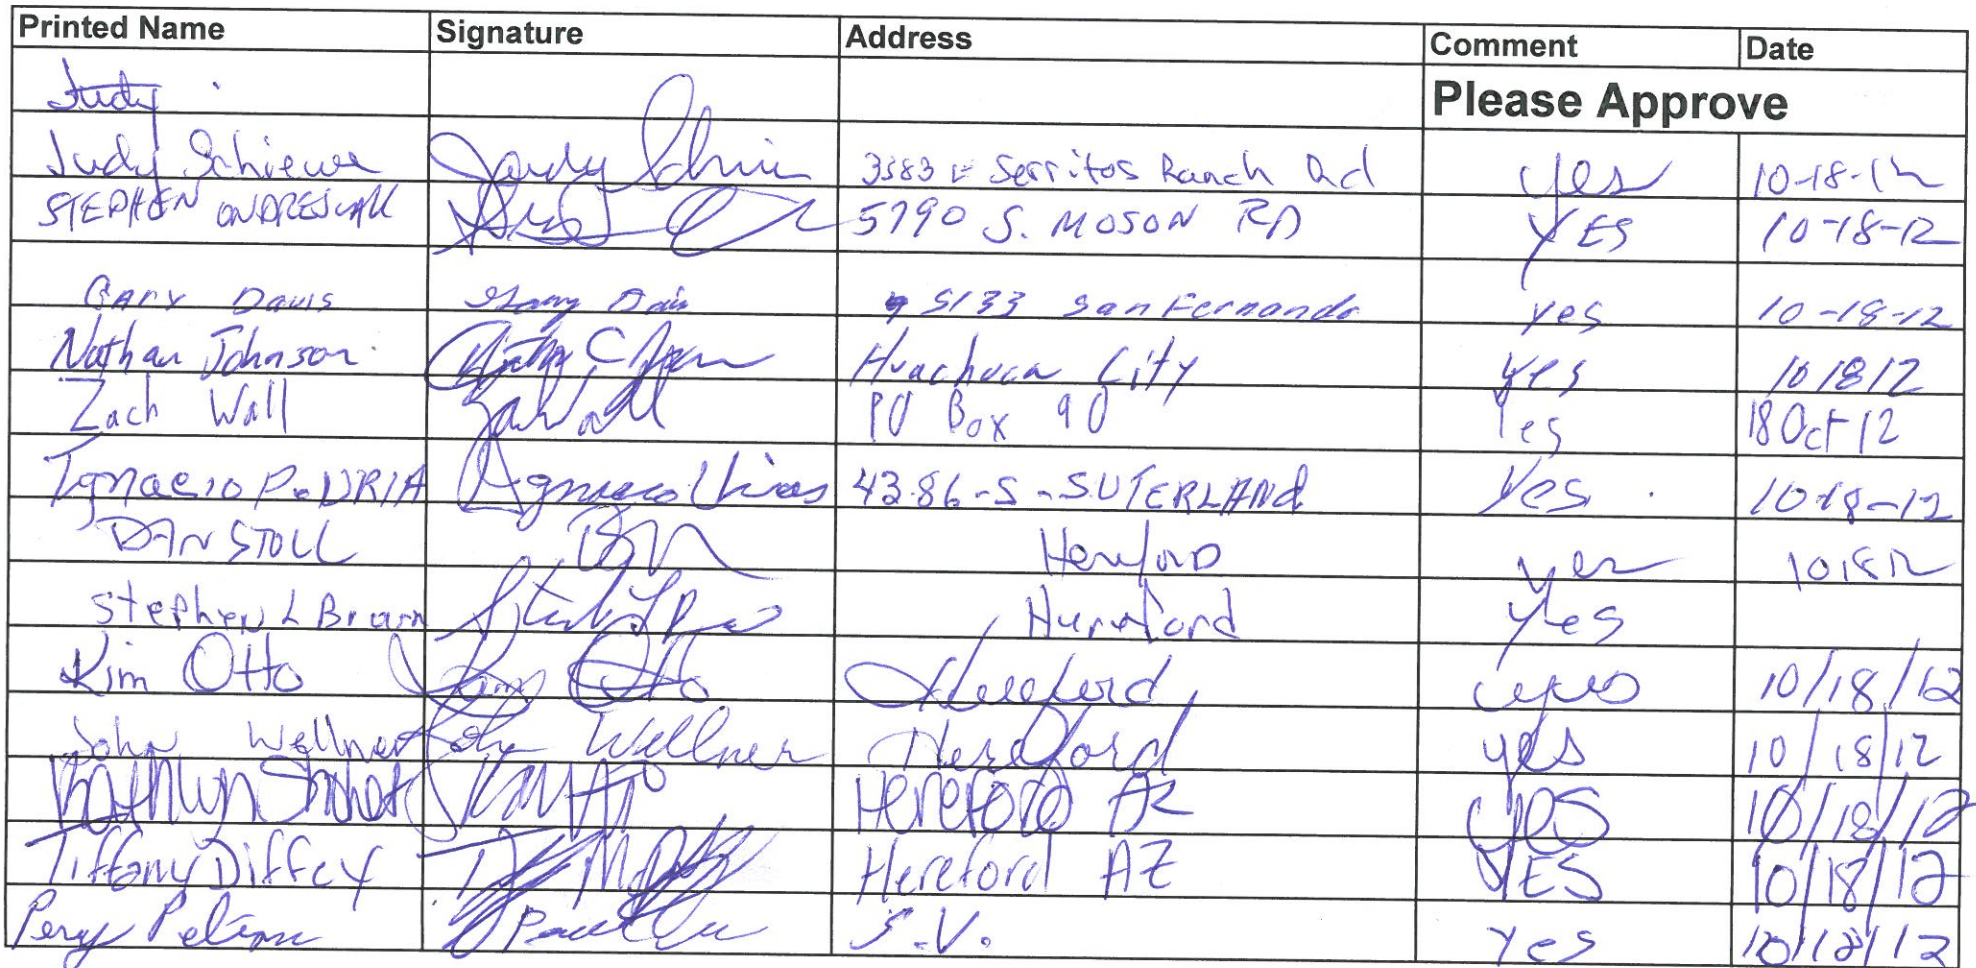 Printed Name Signature Address Comment Date
Judy Please Approve
Judy Schiewe Judy 3383 E Serritos Ranch Rd yes 10-18-12
STEPHEN 5790 S. MOSON RD YES 10-18-12
GARY DAVIS Gary Davis 5133 San Fernando yes 10-18-12
Nathan Johnson Huachuca City yes 101812
Zach Wall Za Wall PO Box 90 Yes 18 Oct 12
Ignacio P. URIA 43-86-S-SUTERLAND Yes 10-18-12
DAN STOLL Hereford yes 101812
Stephen L Brown Hereford yes
Kim Otto Kim Otto Hereford yes 10/18/12
John Wellner John Wellner Hereford yes 10/18/12
Kathlyn Hereford Az yes 10/18/12
Tiffany Diffey Hereford AZ YES 10/18/12
Perry S.V. Yes 10/18/12